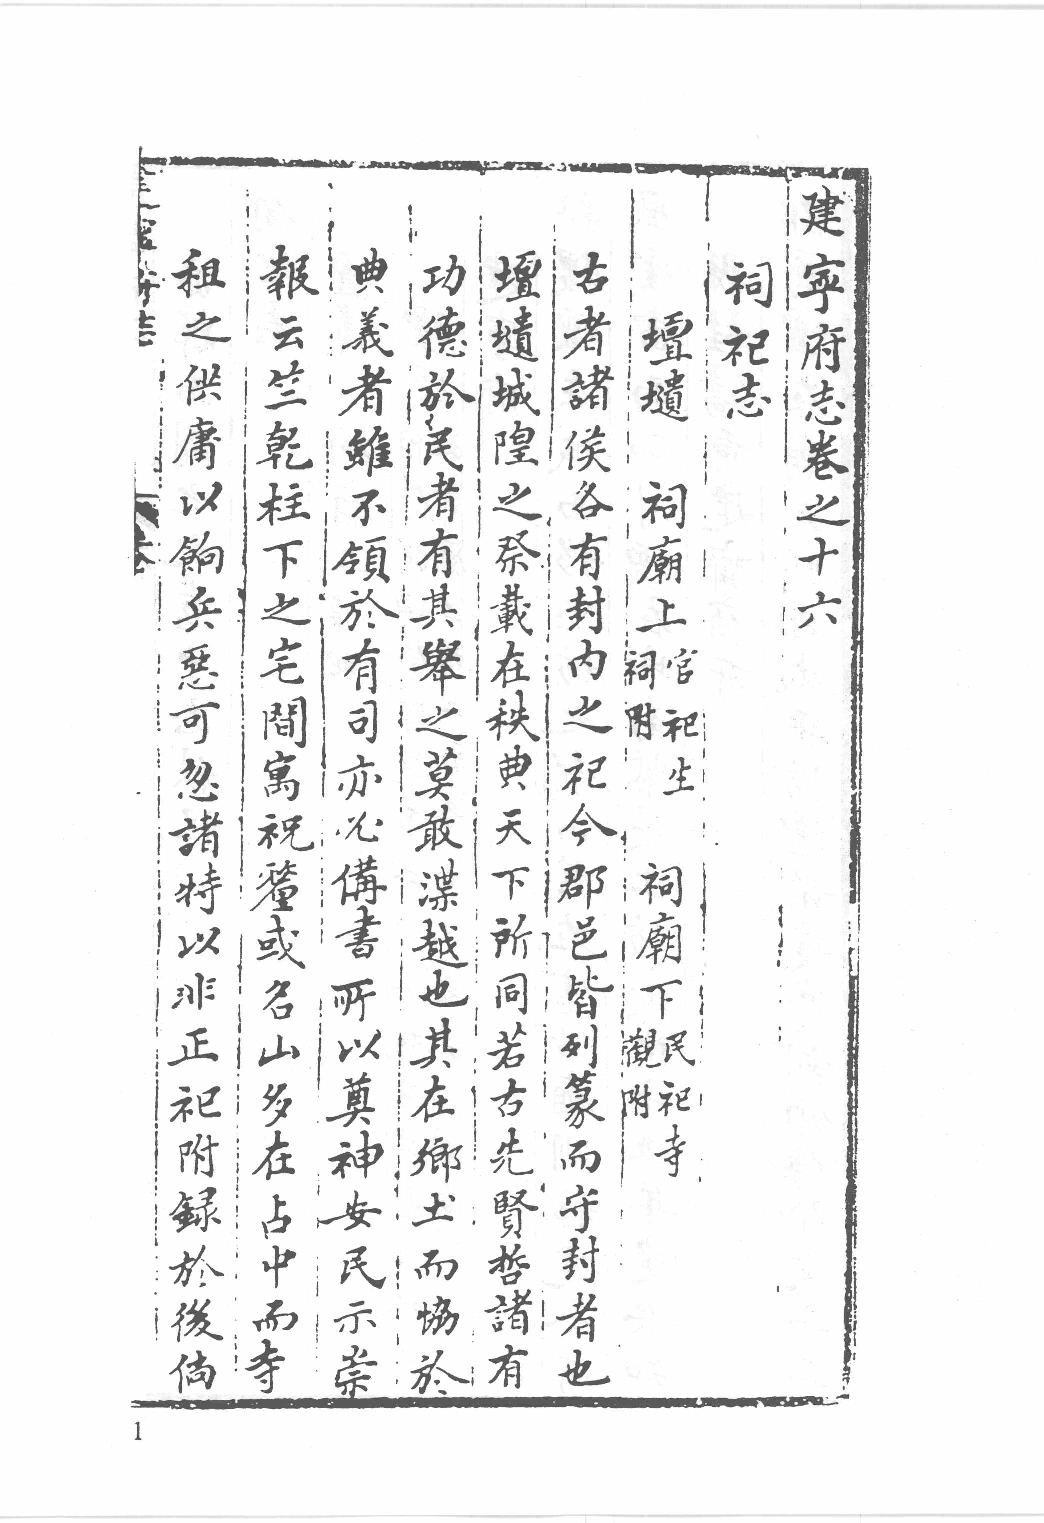 建寧府志卷之十六
祠祀志
壇壝　祠廟上官祀生祠附　祠廟下民祀寺觀附
古者諸侯各有封內之祀今郡邑皆列篆而守封者也
壇壝城隍之祭載在秩典天下所同若古先賢哲諸有
功德於民者有其舉之莫敢渫越也其在鄉土而協於
典義者雖不領於有司亦必備書所以奠神安民示崇
報云竺乾柱下之宅間寓祝釐或名山多在占中而寺
租之供庸以餉兵惡可忽諸特以非正祀附録於後倘
1